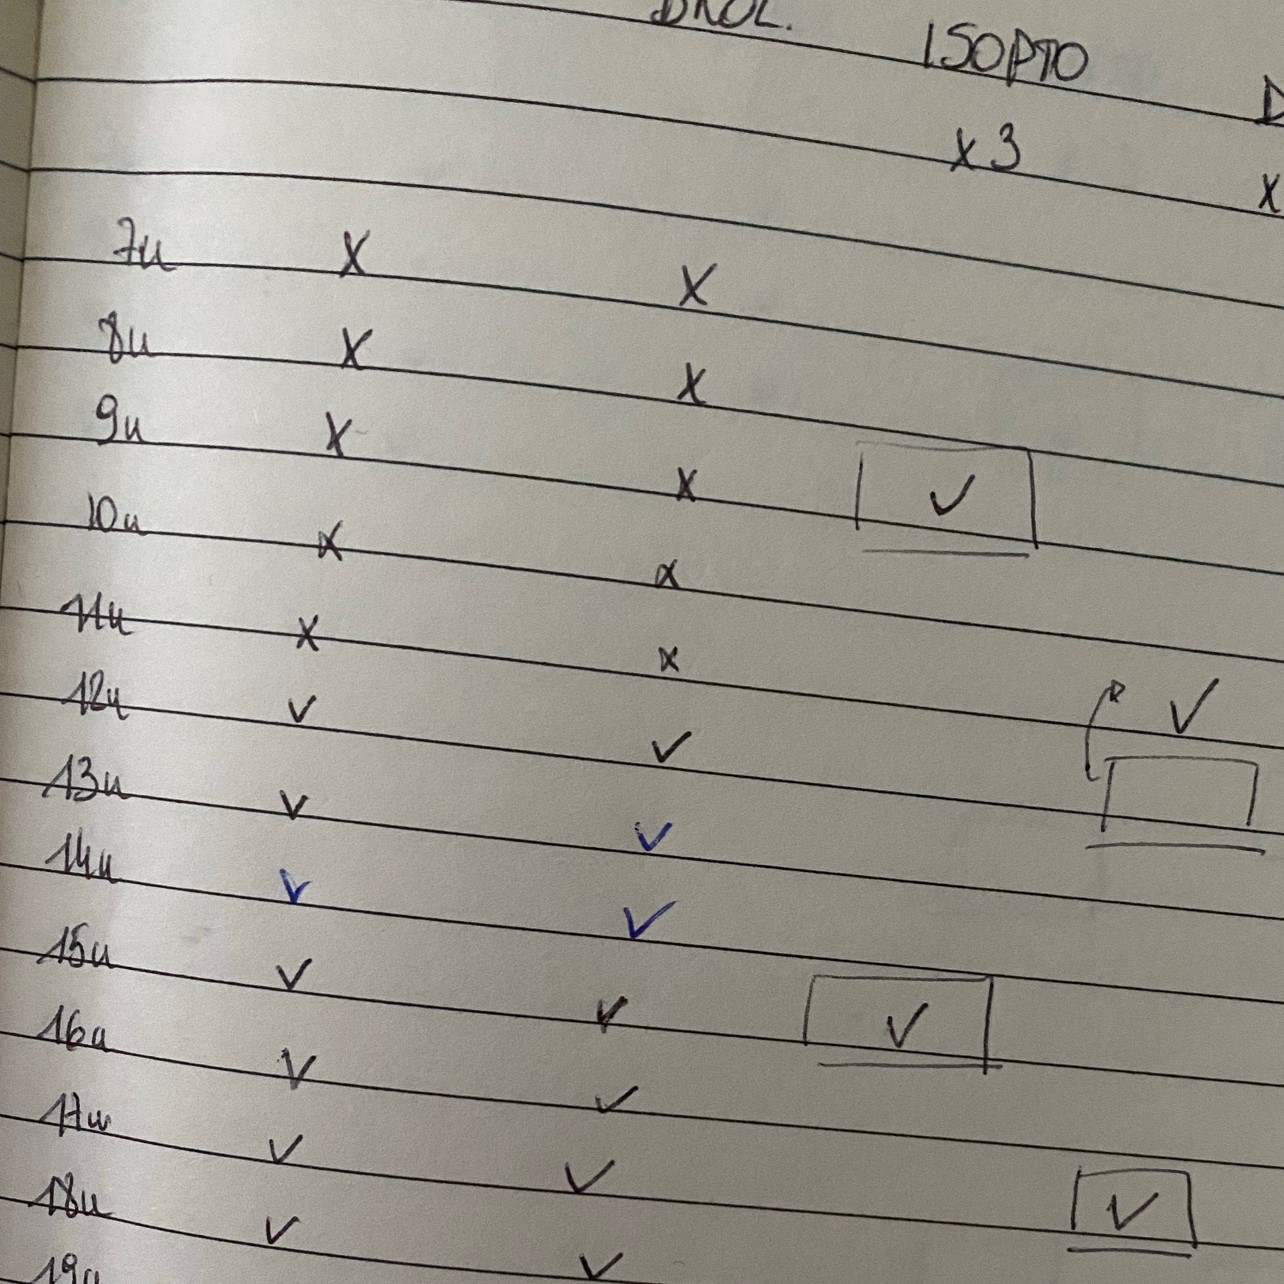 ISOPTO
x3
X
7u X X
8u X X
9u X X ✓
10u X X
11u X X ✓
12u ✓ ✓
13u ✓ ✓
14u ✓ ✓
15u ✓ ✓ ✓
16u ✓ ✓
17u ✓ ✓
18u ✓ ✓ ✓
19u